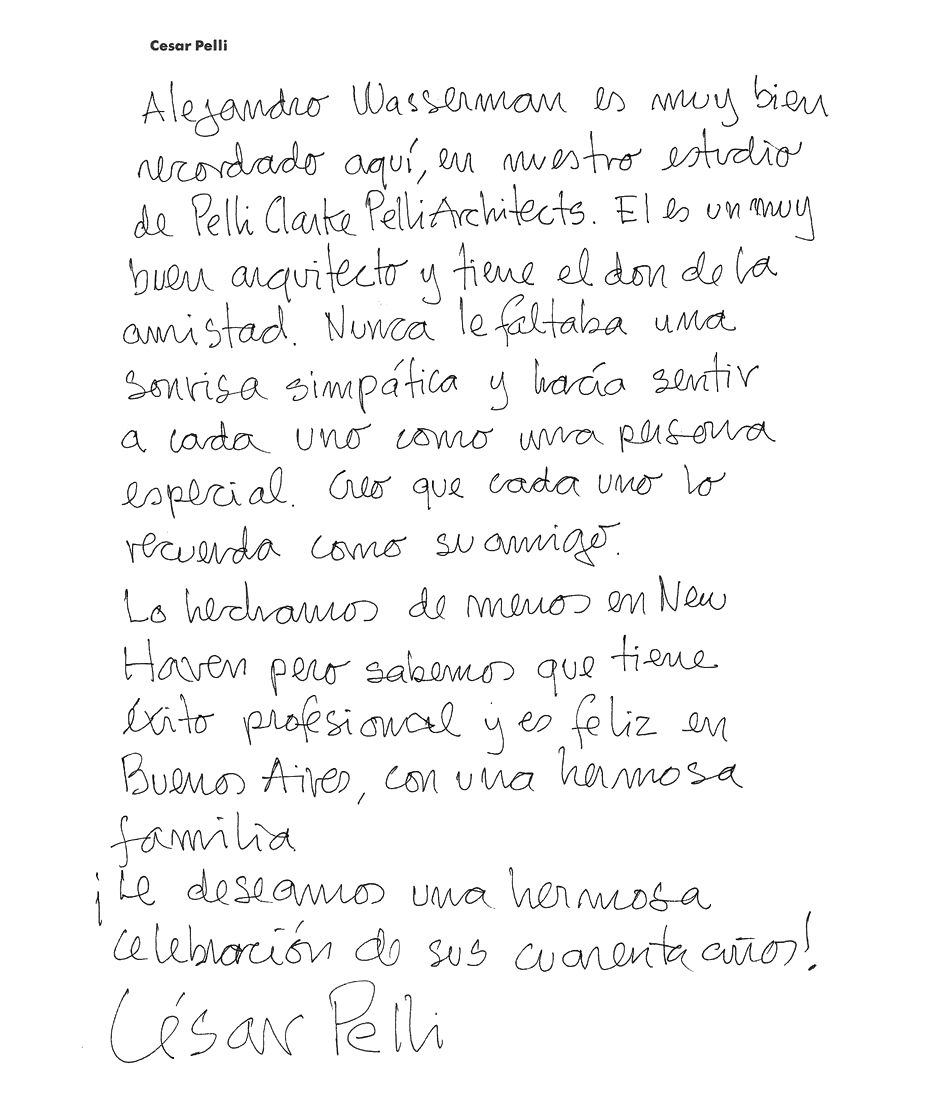 Cesar Pelli
Alejandro Wasserman es muy bien
recordado aquí, en nuestro estudio
de Pelli Clarke Pelli Architects. El es un muy
buen arquitecto y tiene el don de la
amistad. Nunca le faltaba una
sonrisa simpática y hacía sentir
a cada uno como una persona
especial. Creo que cada uno lo
recuerda como su amigo.
Lo hechamos de menos en New
Haven pero sabemos que tiene
éxito profesional y es feliz en
Buenos Aires, con una hermosa
familia
¡Le deseamos una hermosa
celebración de sus cuarenta años!
César Pelli